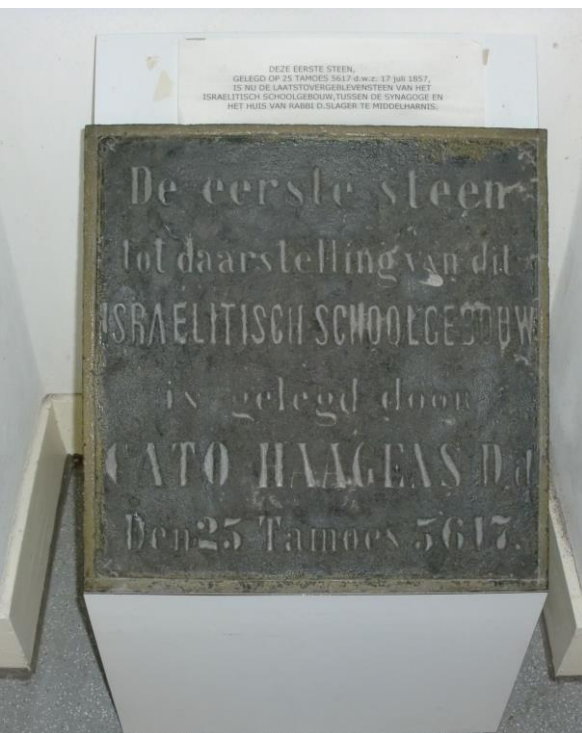 DEZE EERSTE STEEN,
GELEGD OP 25 TAMOES 5617 d.w.z. 17 juli 1857,
IS NU DE LAATSTOVERGEBLEVENSTEEN VAN HET
ISRAELITISCH SCHOOLGEBOUW,TUSSEN DE SYNAGOGE EN
HET HUIS VAN RABBI D.SLAGER TE MIDDELHARNIS.
De eerste steen
tot daarstelling van dit
ISRAELITISCH SCHOOLGEBOUW
is gelegd door
CATO HAAGENS D.d
Den 25 Tamoes 5617.